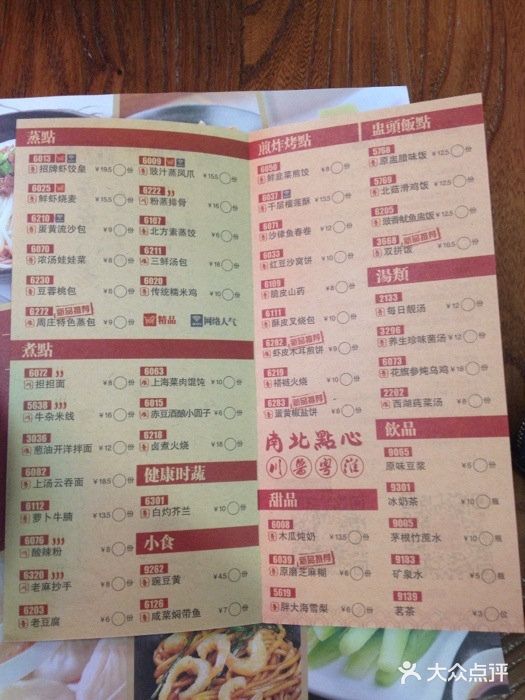 蒸點
6013
招牌虾饺皇 ¥19.5 份
6025
鲜虾烧麦 ¥15.5 份
6210
蛋黄流沙包 ¥9 份
6070
浓汤娃娃菜 ¥18 份
6230
豆蓉桃包 ¥8 份
6227 新品推荐
周庄特色蒸包 ¥9 份
6009
豉汁蒸凤爪 ¥15.5 份
6222
粉蒸排骨 ¥16 份
6107
北方素蒸饺 ¥6 份
6211
三鲜汤包 ¥18 份
6020
传统糯米鸡 ¥10 份
精品
网络人气
煮點
6072
担担面 ¥8 份
5638
牛杂米线 ¥16 份
3036
葱油开洋拌面 ¥12 份
6082
上汤云吞面 ¥18.5 份
6112
萝卜牛腩 ¥13.5 份
6076
酸辣粉 ¥8 份
6320
老麻抄手 ¥8 份
6203
老豆腐 ¥6 份
6063
上海菜肉馄饨 ¥10 份
6015
赤豆酒酿小圆子 ¥6 份
6218
卤煮火烧 ¥18 份
健康时蔬
6301
白灼芥兰 ¥10 份
小食
9262
豌豆黄 ¥4.5 份
6126
咸菜焖带鱼 ¥7.5 份
煎炸烤點
6056
鲜韭菜煎饺 ¥8 份
6037
千层榴莲酥 ¥13.5 份
6071
沙律鱼春卷 ¥12 份
6033
红豆沙窝饼 ¥10 份
6109
脆皮山药 ¥8 份
6111
酥皮叉烧包 ¥10 份
6282 新品推荐
虾皮木耳煎饼 ¥9 份
6219
褡裢火烧 ¥10 份
6283 新品推荐
蛋黄椒盐饼 ¥8 份
南北點心
川 魯 粤 淮
甜品
6008
木瓜炖奶 ¥13.5 份
6039 新品推荐
原磨芝麻糊 ¥6 份
5619
胖大海雪梨 ¥6 份
盅頭飯點
5768
原盅腊味饭 ¥12.5 份
5769
北菇滑鸡饭 ¥12.5 份
6205
豉香鱿鱼盅饭 ¥12.5 份
3669 新品推荐
双拼饭 ¥16.5 份
湯類
2133
每日靓汤 ¥12 份
3296
养生珍味菌汤 ¥12 份
6073
花旗参炖乌鸡 ¥18 份
2202
西湖莼菜汤 份
飲品
9065
原味豆浆 ¥5 份
9301
冰奶茶 ¥10 瓶
9005
茅根竹蔗水 ¥10 瓶
9183
矿泉水 ¥5 瓶
9139
茗茶 ¥3 位
大众点评